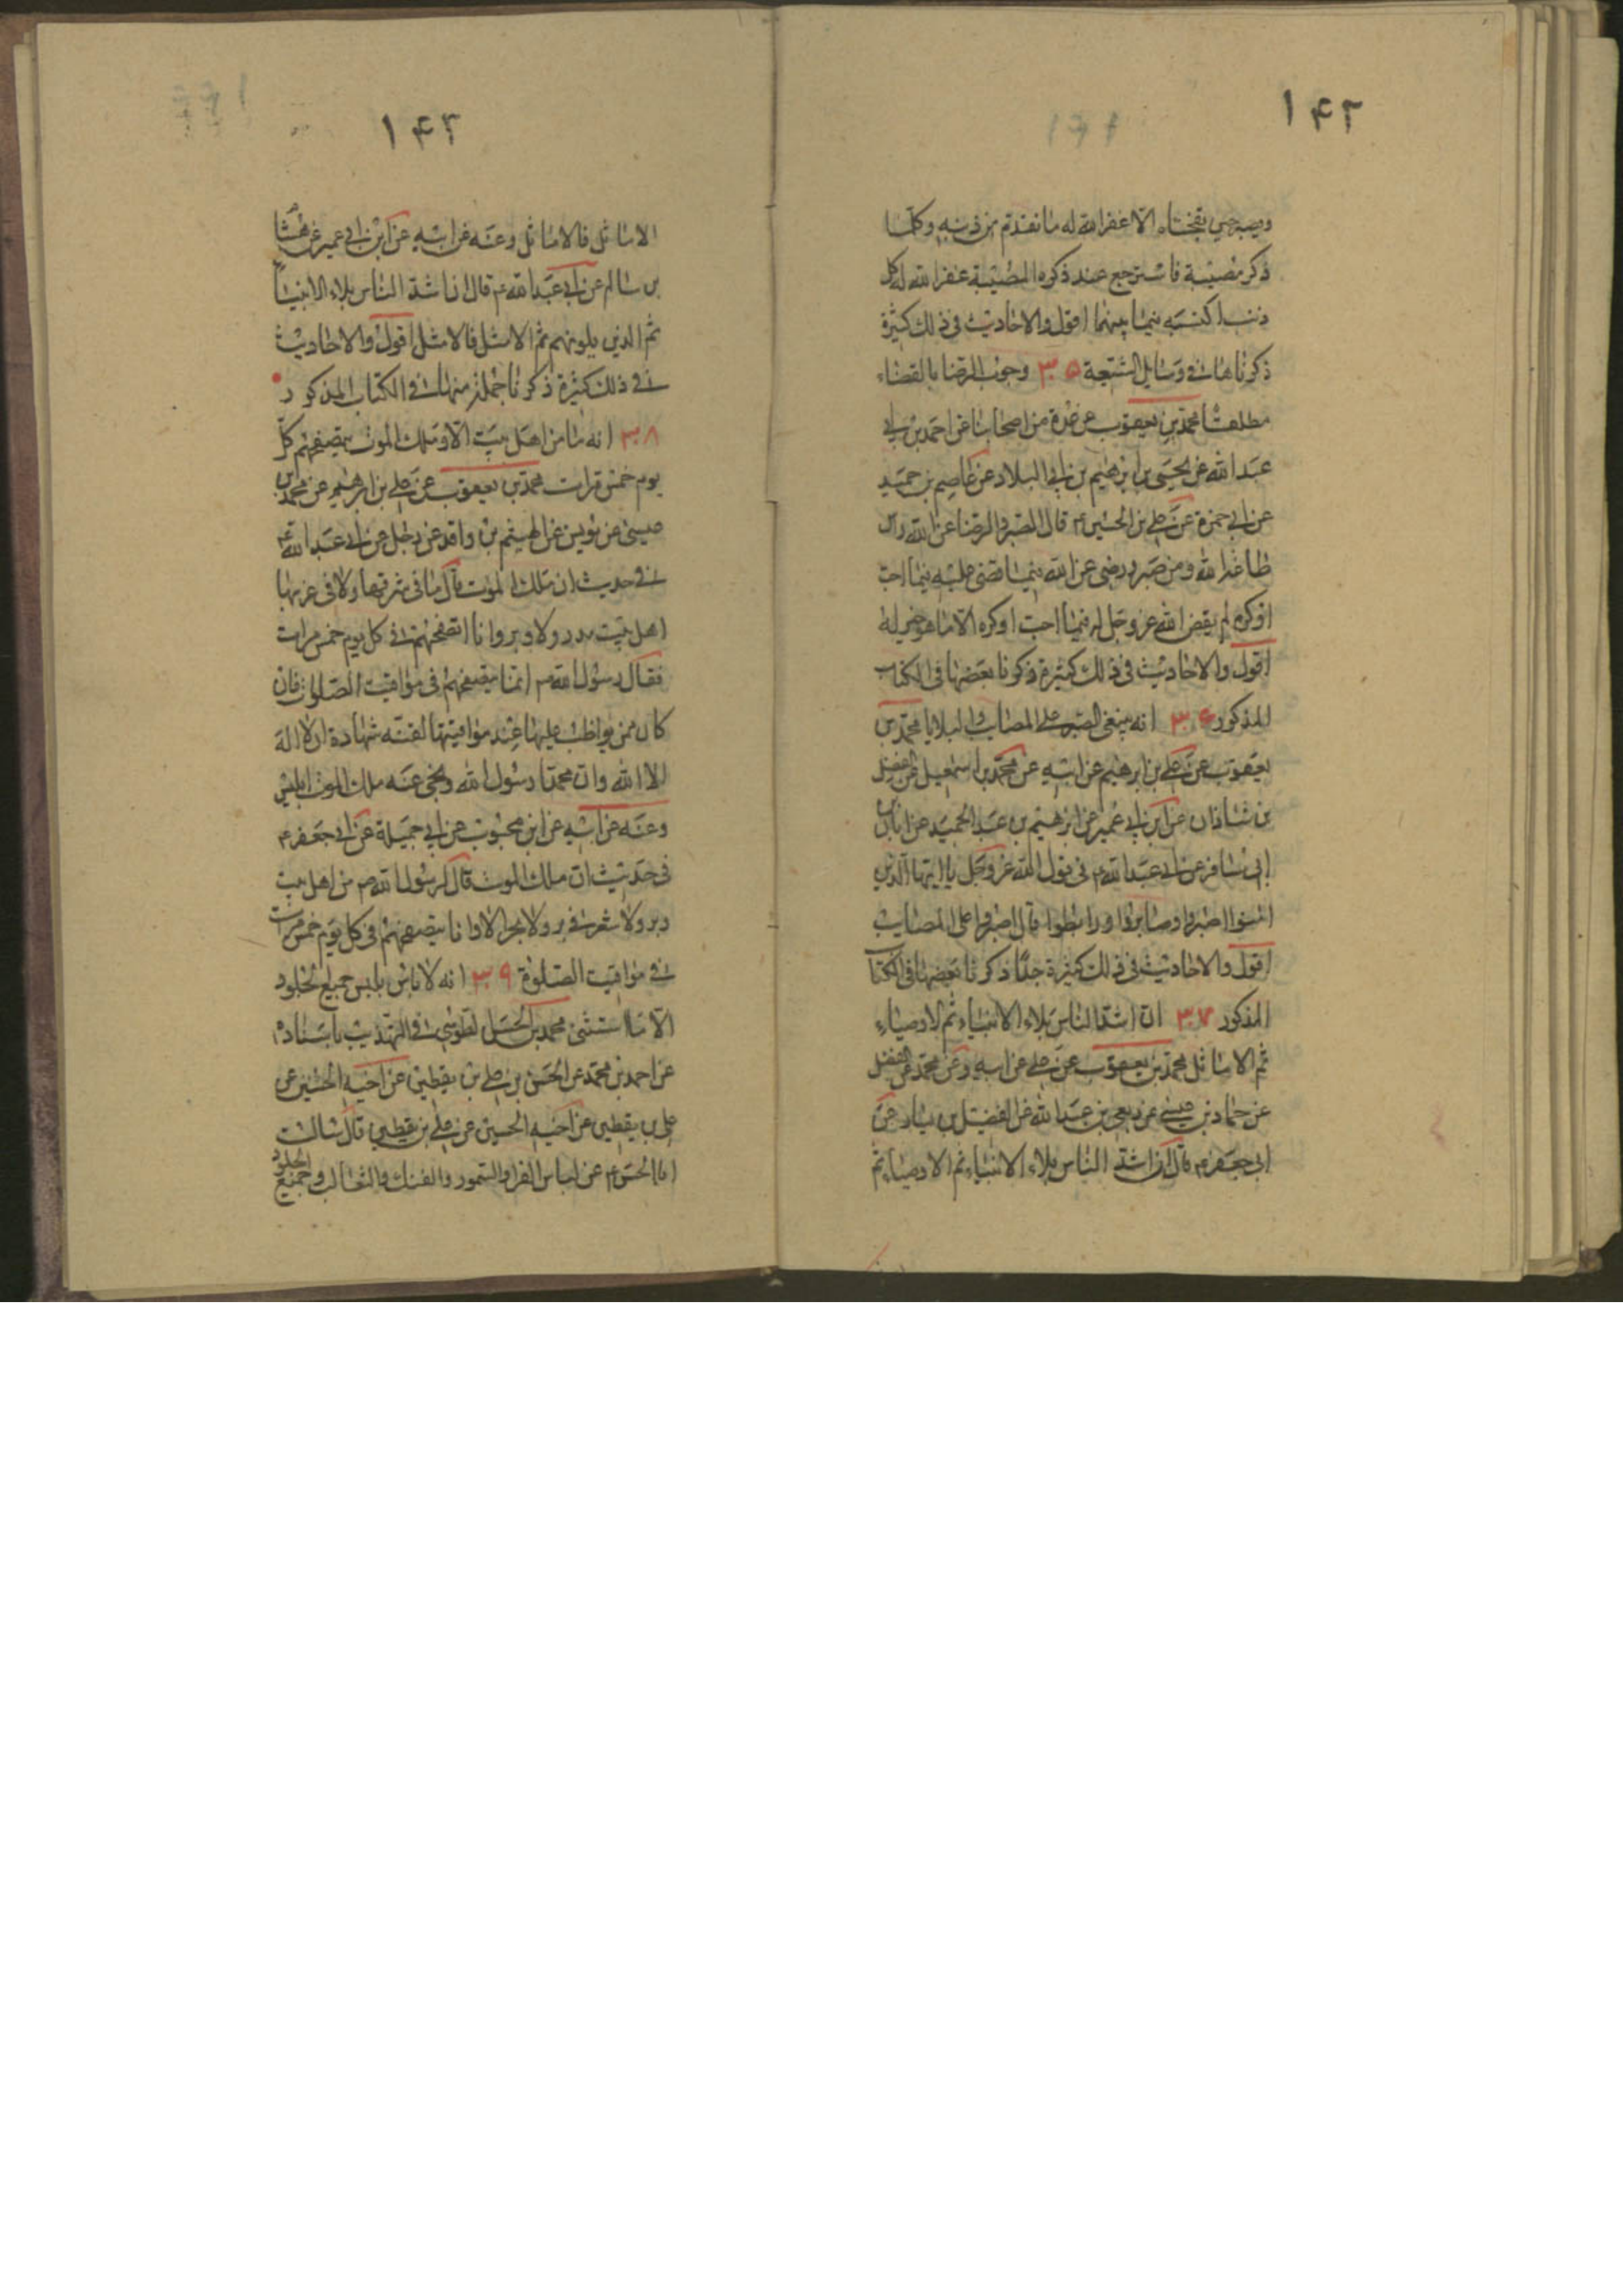 ۱۴۲
ويصبر حين تفجأه الا غفر الله له ما تقدم من ذنبه وكلما
ذكر مصيبة فاسترجع عند ذكره المصيبة غفر الله له كل
ذنب اكتسبه فيما بينهما اقول والاحاديث فى ذلك كثيرة
ذكرناها فى وسايل الشيعة ۳۰۵ وجوب الرضا بالقضاء
مطلقا محمد بن يعقوب عن عدة من اصحابنا عن احمد بن ابى
عبد الله عن يحيى بن ابرهيم بن ابى البلاد عن عاصم بن حميد
عن ابى حمزة عن على بن الحسين ع قال الصبر والرضا عن الله راس
طاعة الله ومن صبر ورضى عن الله فيما قضى عليه فيما احب
او كره لم يقض الله عز وجل له فيما احب او كره الا ما هو خير له
اقول والاحاديث فى ذلك كثيرة ذكرنا بعضها فى الكتاب
المذكور ۳۰۶ انه ينبغى الصبر على المصايب والبلايا محمد بن
يعقوب عن على بن ابرهيم عن ابيه عن محمد بن اسمعيل عن الفضل
بن شاذان عن ابن ابى عمير عن ابرهيم بن عبد الحميد عن ابان بن
ابى مسافر عن ابى عبد الله ع فى قول الله عز وجل يا ايها الذين
امنوا اصبروا وصابروا ورابطوا قال اصبروا على المصايب
اقول والاحاديث فى ذلك كثيرة جدا ذكرنا بعضها فى الكتاب
المذكور ۳۰۷ ان اشد الناس بلاء الانبياء ثم الاوصياء
ثم الاماثل محمد بن يعقوب عن على عن ابيه وعن محمد عن الفضل
عن حماد بن عيسى عن ربعى بن عبد الله عن الفضيل بن يسار عن
ابى جعفر ع قال ان اشد الناس بلاء الانبياء ثم الاوصياء ثم
۱۴۳
الاماثل فالاماثل وعنه عن ابيه عن ابن ابى عمير عن هشام
بن سالم عن ابى عبد الله ع قال ان اشد الناس بلاء الانبياء
ثم الذين يلونهم ثم الامثل فالامثل اقول والاحاديث
فى ذلك كثيرة ذكرنا جملة منها فى الكتاب المذكور
۳۰۸ انه ما من اهل بيت الا وملك الموت يتصفحهم كل
يوم خمس مرات محمد بن يعقوب عن على بن ابرهيم عن محمد بن
عيسى عن يونس عن الهيثم بن واقد عن رجل عن ابى عبد الله ع
فى حديث ان ملك الموت قال ما فى شرقها ولا فى غربها
اهل بيت مدر ولا وبر وانا اتصفحهم فى كل يوم خمس مرات
فقال رسول الله ص انما يتصفحهم فى مواقيت الصلوة فان
كان ممن يواظب عليها عند مواقيتها لقنه شهادة ان لا اله
الا الله وان محمدا رسول الله ونحى عنه ملك الموت ابليس
وعنه عن ابيه عن ابن محبوب عن ابى جميلة عن ابى جعفر ع
فى حديث ان ملك الموت قال لرسول الله ص من اهل بيت
دبر ولا شعر فى بر ولا بحر الا وانا يتصفحهم فى كل يوم خمس مرات
فى مواقيت الصلوة ۳۰۹ انه لا باس بلبس جميع الجلود
الا ما استثنى محمد بن الحسن الطوسى فى التهذيب باسناده
عن احمد بن محمد عن الحسن بن على بن يقطين عن اخيه الحسين عن
على بن يقطين عن اخيه الحسين عن على بن يقطين قال سالت
ابا الحسن ع عن لباس الفرا والسمور والفنك والثعالب وجميع الجلود